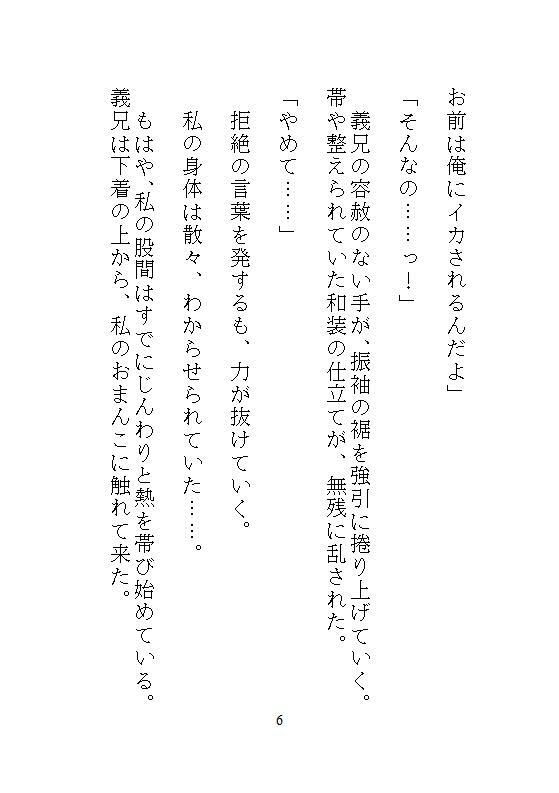 お前は俺にイカされるんだよ」
「そんなの……っ！」
　義兄の容赦のない手が、振袖の裾を強引に捲り上げていく。
帯や整えられていた和装の仕立てが、無残に乱された。
「やめて……」
　拒絶の言葉を発するも、力が抜けていく。
　私の身体は散々、わからせられていた……。
　もはや、私の股間はすでにじんわりと熱を帯び始めている。
義兄は下着の上から、私のおまんこに触れて来た。
6